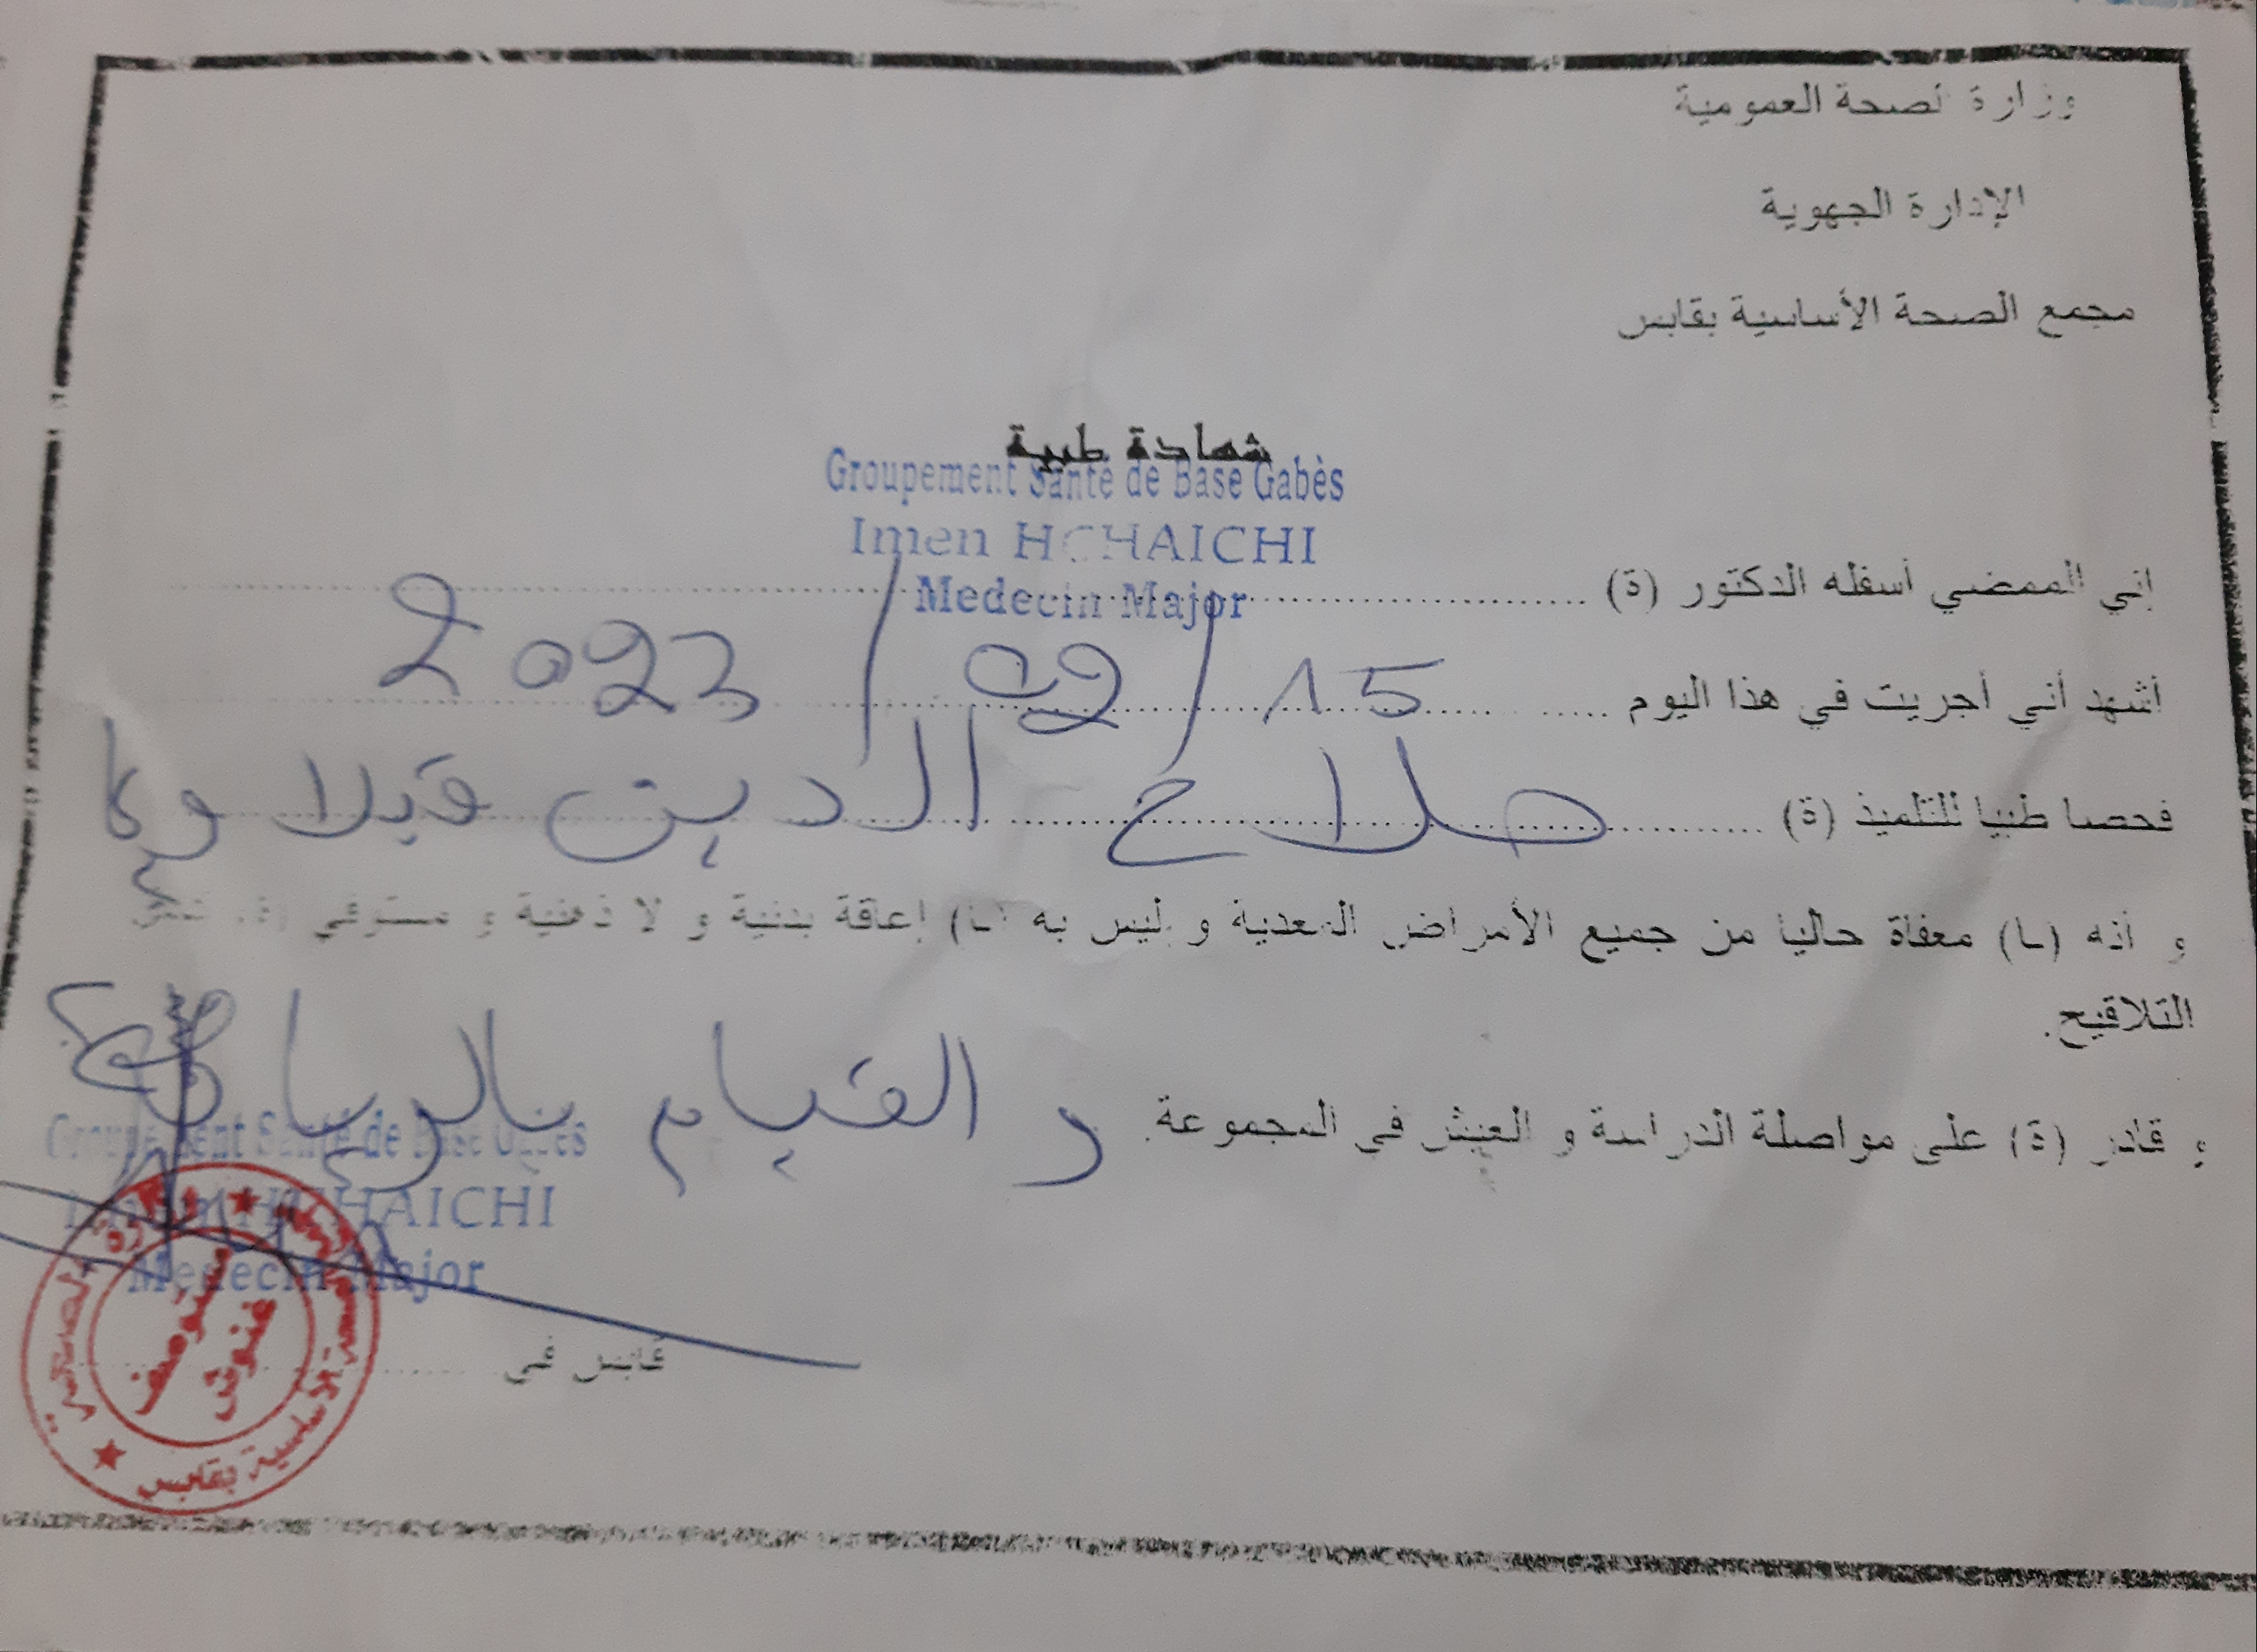 وزارة الصحة العمومية
الإدارة الجهوية
مجمع الصحة الأساسية بقابس
شهادة طبية
Groupement Santé de Base Gabès
Imen HCHAICHI
Medecin Major
إني الممضي أسفله الدكتور (ة)
أشهد أني أجريت في هذا اليوم 15/02/2023
فحصا طبيا للتلميذ (ة) صلاح الدين
و أنه (ـا) معفاة حاليا من جميع الأمراض المعدية و ليس به (ـا) إعاقة بدنية و لا ذهنية و مستوفي (ة)
التلاقيح.
و قادر (ة) على مواصلة الدراسة و العيش في المجموعة. و القيام بالرياضة
Groupement Santé de Base Gabès
Imen HCHAICHI
Medecin Major
قابس في
مستوصف
غنوش
الصحة الأساسية بقابس